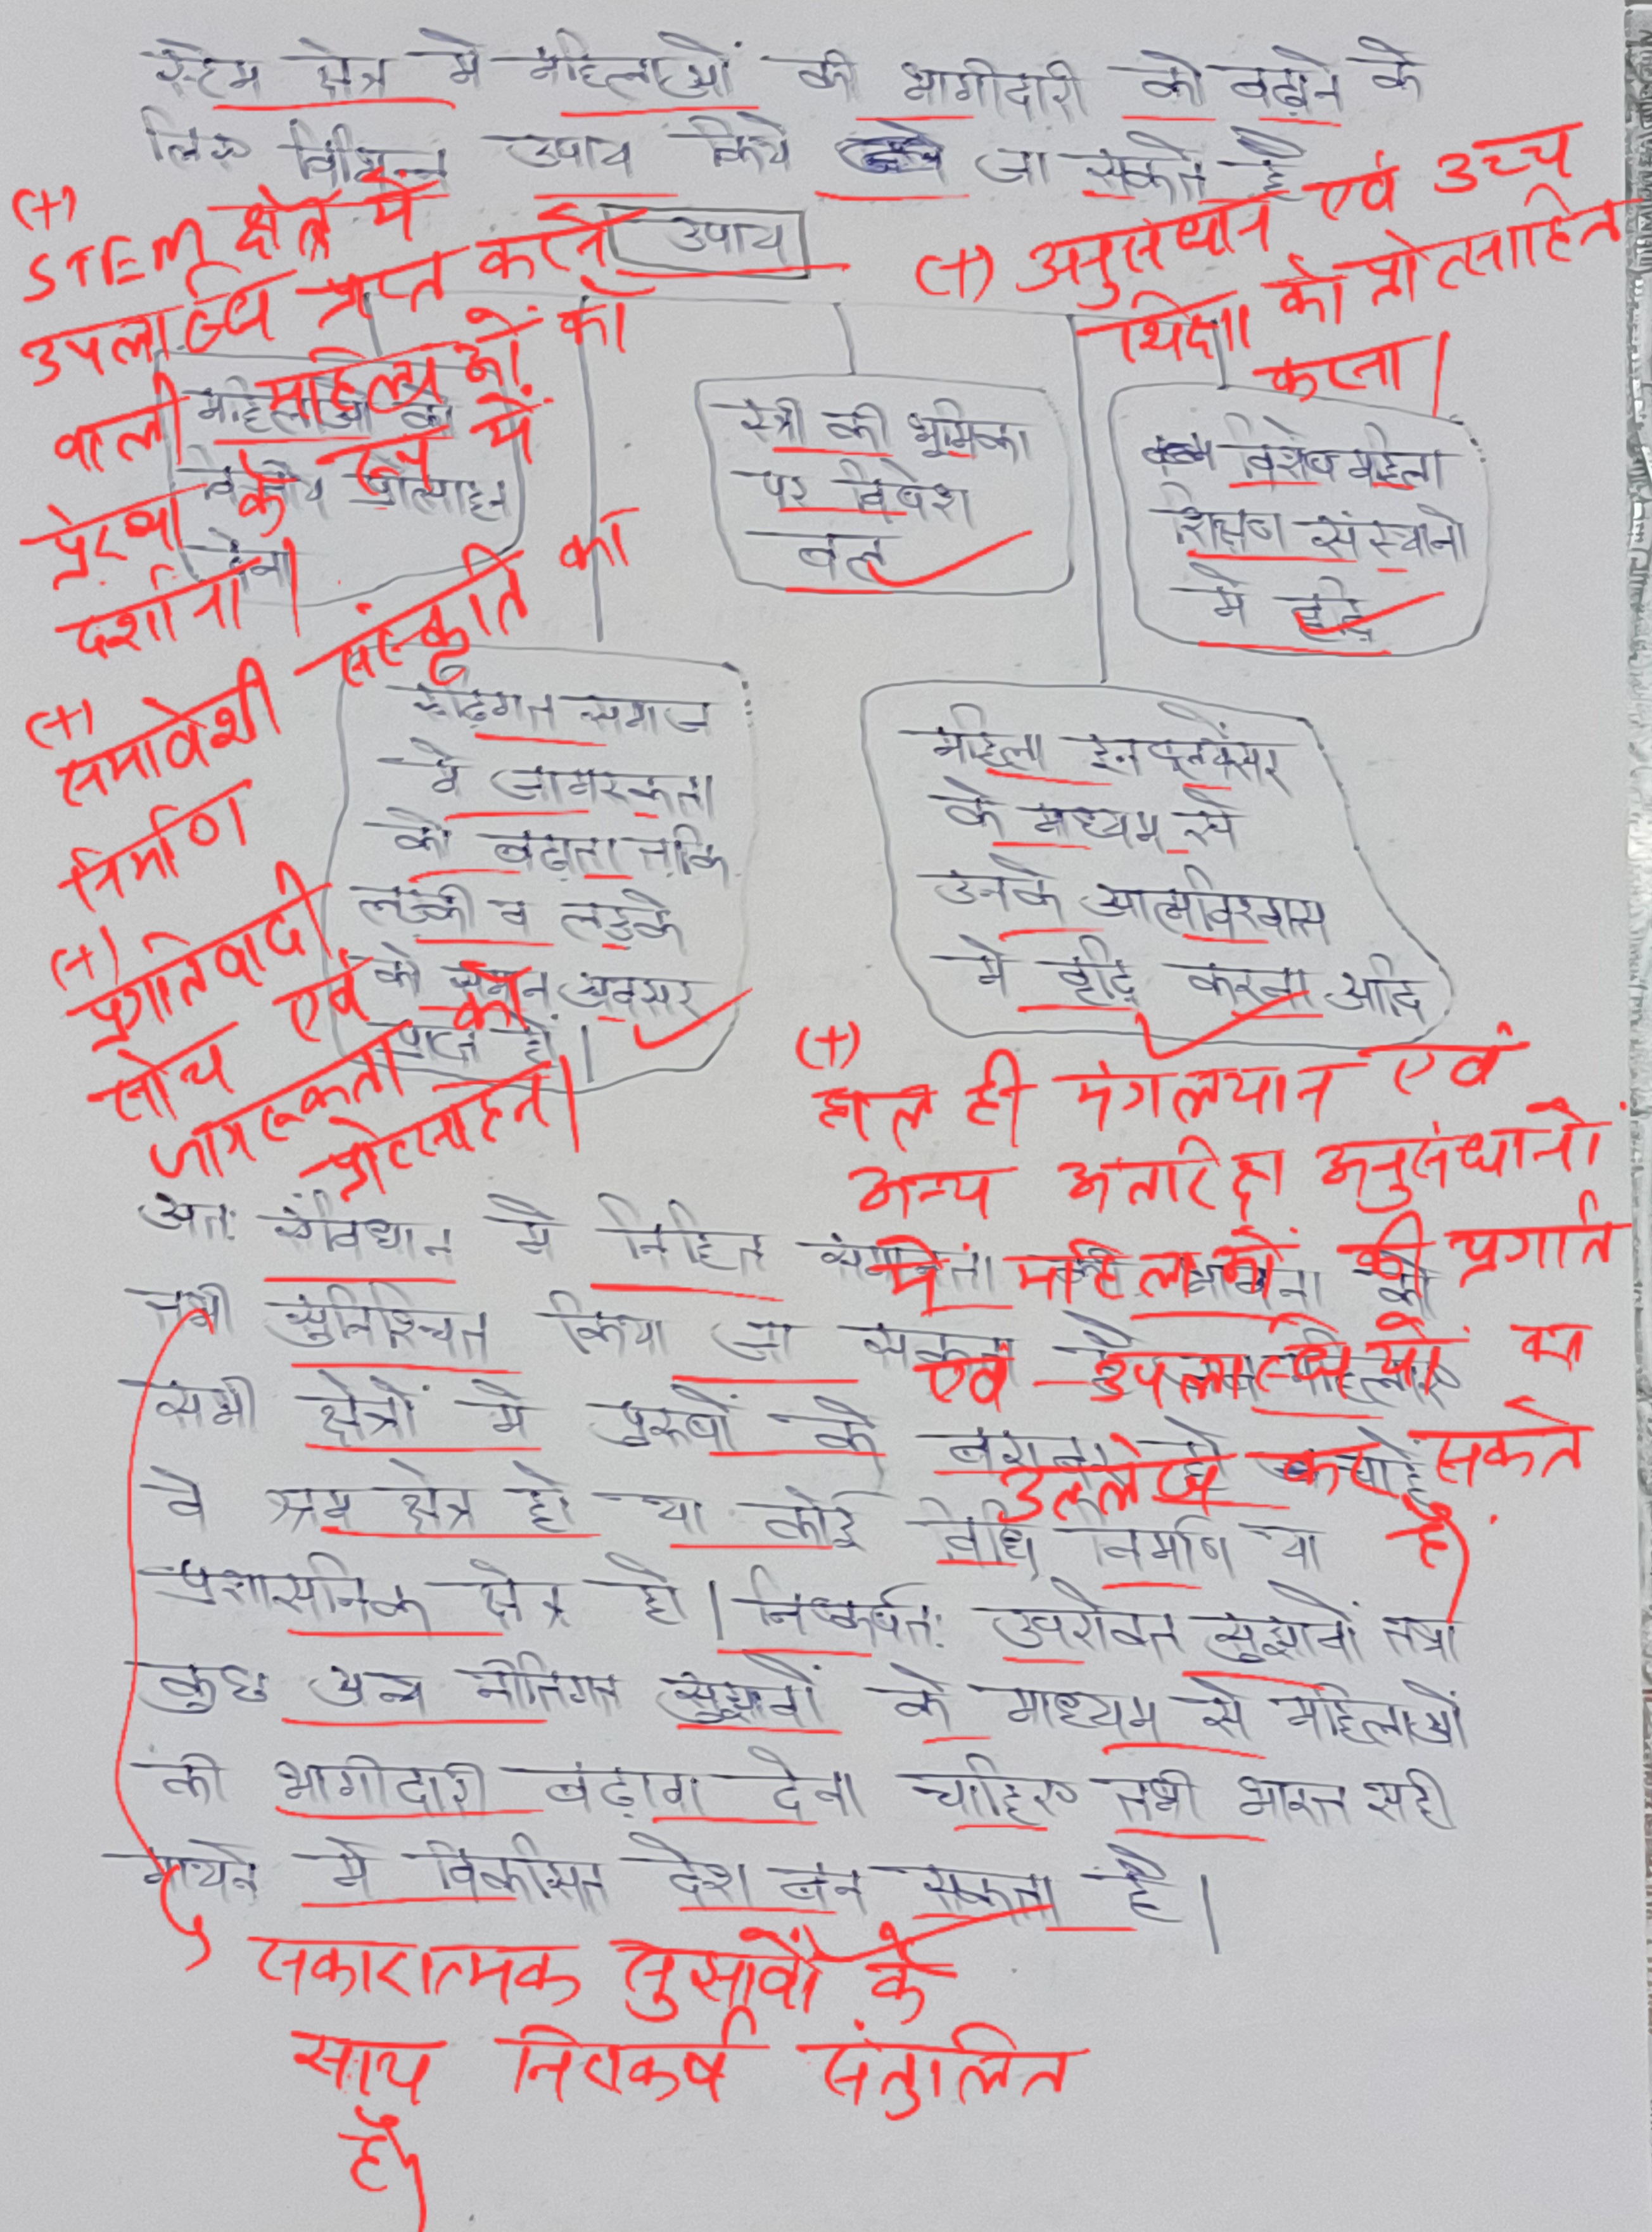 स्टेम क्षेत्र मे महिलाओं की भागीदारी को बढ़ाने के
लिए विभिन्न उपाय किये जा सकते है
उपाय
महिलाओ को
वित्तीय प्रोत्साहन
देना
स्त्री की भूमिका
पर विशेष
बल
विशेष महिला
शिक्षण संस्थानो
मे वृद्धि
रूढ़िगत समाज
मे जागरूकता
को बढ़ाना ताकि
लड़की व लड़के
को समान अवसर
प्राप्त हो।
महिला इन्फ्लूवेंसर
के माध्यम से
उनके आत्मविश्वास
मे वृद्धि करना आदि
अतः संविधान मे निहित समानता की भावना को
तभी सुनिश्चित किया जा सकता है जब महिलाए
सभी क्षेत्रों मे पुरूषों के बराबर हो चाहें
वे श्रम क्षेत्र हो या कोई विधि निर्माण या
प्रशासनिक क्षेत्र हो। निष्कर्षतः उपरोक्त सुझावों तथा
कुछ अन्य नीतिगत सुझावों के माध्यम से महिलाओं
की भागीदारी बढ़ावा देना चाहिए तभी भारत सही
मायने मे विकसित देश बन सकता है।
(+)
STEM क्षेत्र में
उपलब्धि प्राप्त करने
वाली महिलाओं को
प्रेरणा के रूप में
दर्शाना।
(+) अनुसंधान एवं उच्च
शिक्षा को प्रोत्साहित
करना।
(+)
समावेशी संस्कृति का
निर्माण
(+)
प्रगतिवादी
सोच एवं
जागरूकता को
प्रोत्साहन।
(+)
हाल ही मंगलयान एवं
अन्य अंतरिक्ष अनुसंधानों
में महिलाओं की प्रगति
एवं उपलब्धियों का
उल्लेख कर सकते
हैं।
सकारात्मक सुझावों के
साथ निष्कर्ष संतुलित
है।